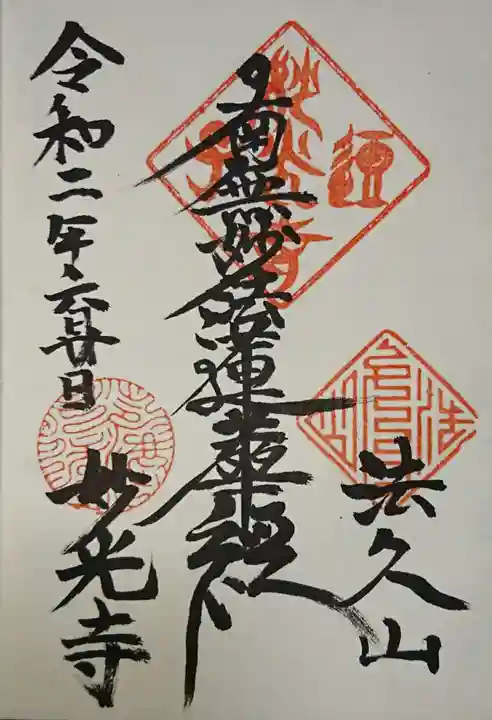 久山
南無妙法蓮華經
令和二年六月廿日
妙光寺